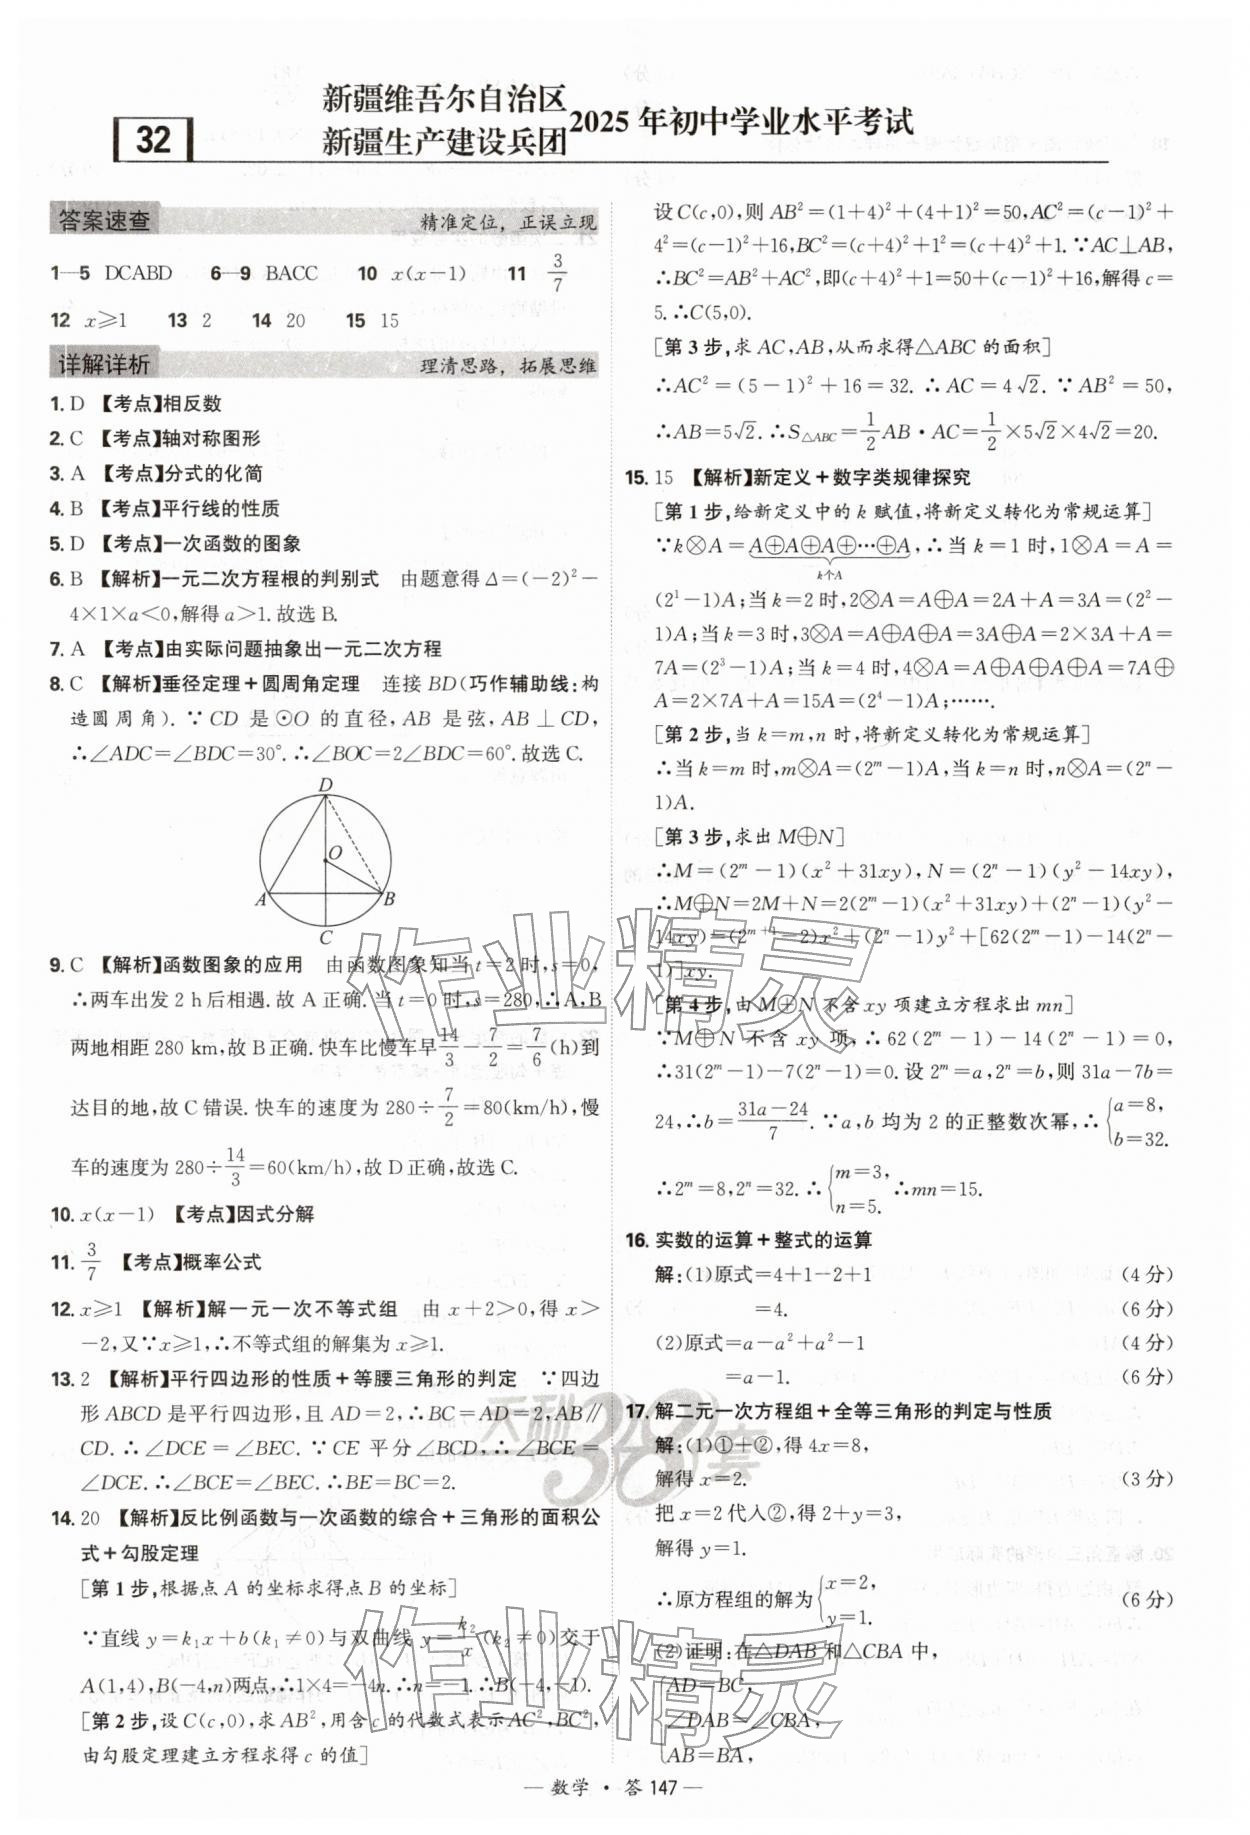 32
新疆维吾尔自治区
新疆生产建设兵团
2025年初中学业水平考试
答案速查 精准定位，正误立现
1—5 DCABD 6—9 BACC 10 x(x−1) 11 3/7
12 x≥1 13 2 14 20 15 15
详解详析 理清思路，拓展思维
1. D 【考点】相反数
2. C 【考点】轴对称图形
3. A 【考点】分式的化简
4. B 【考点】平行线的性质
5. D 【考点】一次函数的图象
6. B 【解析】一元二次方程根的判别式 由题意得Δ=(−2)²−
4×1×a<0,解得a>1.故选B.
7. A 【考点】由实际问题抽象出一元二次方程
8. C 【解析】垂径定理+圆周角定理 连接BD(巧作辅助线:构
造圆周角).∵CD是⊙O的直径,AB是弦,AB⊥CD,
∴∠ADC=∠BDC=30°.∴∠BOC=2∠BDC=60°.故选C.
D
O
A
B
C
9. C 【解析】函数图象的应用 由函数图象知当t=2时,s=0,
∴两车出发2 h后相遇.故A正确.当t=0时,s=280,∴A,B
两地相距280 km,故B正确.快车比慢车早14/3−7/2=7/6(h)到
达目的地,故C错误.快车的速度为280÷7/2=80(km/h),慢
车的速度为280÷14/3=60(km/h),故D正确,故选C.
10. x(x−1) 【考点】因式分解
11. 3/7 【考点】概率公式
12. x≥1 【解析】解一元一次不等式组 由x+2>0,得x>
−2,又∵x≥1,∴不等式组的解集为x≥1.
13. 2 【解析】平行四边形的性质+等腰三角形的判定 ∵四边
形ABCD是平行四边形,且AD=2,∴BC=AD=2,AB∥
CD.∴∠DCE=∠BEC.∵CE平分∠BCD,∴∠BCE=
∠DCE.∴∠BCE=∠BEC.∴BE=BC=2.
14. 20 【解析】反比例函数与一次函数的综合+三角形的面积公
式+勾股定理
[第1步,根据点A的坐标求得点B的坐标]
∵直线y=k₁x+b(k₁≠0)与双曲线y=k₂/x(k₂≠0)交于
A(1,4),B(−4,n)两点,∴1×4=−4n.∴n=−1.∴B(−4,−1).
[第2步,设C(c,0),求AB²,用含c的代数式表示AC²,BC²,
由勾股定理建立方程求得c的值]
设C(c,0),则AB²=(1+4)²+(4+1)²=50,AC²=(c−1)²+
4²=(c−1)²+16,BC²=(c+4)²+1²=(c+4)²+1.∵AC⊥AB,
∴BC²=AB²+AC²,即(c+4)²+1=50+(c−1)²+16,解得c=
5.∴C(5,0).
[第3步,求AC,AB,从而求得△ABC的面积]
∴AC²=(5−1)²+16=32.∴AC=4√2.∵AB²=50,
∴AB=5√2.∴S△ABC=1/2AB·AC=1/2×5√2×4√2=20.
15. 15 【解析】新定义+数字类规律探究
[第1步,给新定义中的k赋值,将新定义转化为常规运算]
∵k⊗A=A⊕A⊕A⊕…⊕A,∴当k=1时,1⊗A=A=
k个A
(2¹−1)A;当k=2时,2⊗A=A⊕A=2A+A=3A=(2²−
1)A;当k=3时,3⊗A=A⊕A⊕A=3A⊕A=2×3A+A=
7A=(2³−1)A;当k=4时,4⊗A=A⊕A⊕A⊕A=7A⊕
A=2×7A+A=15A=(2⁴−1)A;…….
[第2步,当k=m,n时,将新定义转化为常规运算]
∴当k=m时,m⊗A=(2ᵐ−1)A,当k=n时,n⊗A=(2ⁿ−
1)A.
[第3步,求出M⊕N]
∴M=(2ᵐ−1)(x²+31xy),N=(2ⁿ−1)(y²−14xy),
∴M⊕N=2M+N=2(2ᵐ−1)(x²+31xy)+(2ⁿ−1)(y²−
14xy)=(2ᵐ⁺¹−2)x²+(2ⁿ−1)y²+[62(2ᵐ−1)−14(2ⁿ−
1)]xy.
[第4步,由M⊕N不含xy项建立方程求出mn]
∵M⊕N不含xy项,∴62(2ᵐ−1)−14(2ⁿ−1)=0,
∴31(2ᵐ−1)−7(2ⁿ−1)=0.设2ᵐ=a,2ⁿ=b,则31a−7b=
24,∴b=(31a−24)/7.∵a,b均为2的正整数次幂,∴{a=8, b=32.
∴2ᵐ=8,2ⁿ=32.∴{m=3, n=5. ∴mn=15.
16. 实数的运算+整式的运算
解:(1)原式=4+1−2+1 (4分)
=4. (6分)
(2)原式=a−a²+a²−1 (4分)
=a−1. (6分)
17. 解二元一次方程组+全等三角形的判定与性质
解:(1)①+②,得4x=8,
解得x=2. (3分)
把x=2代入②,得2+y=3,
解得y=1.
∴原方程组的解为{x=2, y=1. (6分)
(2)证明:在△DAB和△CBA中,
{AD=BC,
∠DAB=∠CBA,
AB=BA,
作业精灵
天利38套
作业精灵
— 数学·答147 —